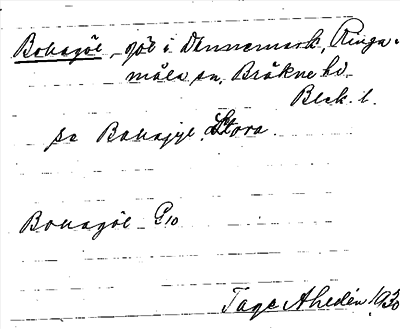 Bokagöl, göl i Dannemark, Ringa-
måla sn, Bräkne hd,
Blek. l.
se Bokagyl, Stora.
Bokagöl G10
Tage Ahldén 1930